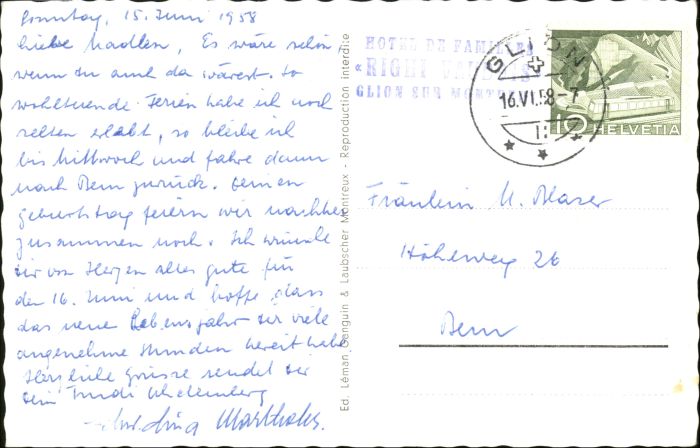 Sonntag, 15. Juni 1958
Liebe Madlen, Es wäre schön
wenn du auch da wärest. So
wohltuende Ferien habe ich noch
selten erlebt, so bleibe ich
bis Mittwoch und fahre dann
nach Bern zurück. Deinen
Geburtstag feiern wir nachher
zusammen noch. Ich wünsche
dir von Herzen alles gute für
den 16. Juni und hoffe, dass
das neue Lebensjahr dir viele
angenehme Stunden bereit habe.
Herzliche Grüsse sendet dir
dein
Ed. Léman, Genguin & Laubscher Montreux - Reproduction interdite
HOTEL DE FAMILLES
« RIGHI VAUDOIS »
GLION SUR MONTREUX
GLION
16.VI.58-7
10 HELVETIA
Fräulein M. Blaser
Höheweg 26
Bern